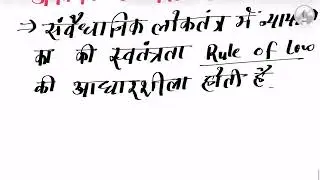 → संवैधानिक लोकतंत्र में
का की स्वतंत्रता Rule of Law
की आधारशीला होती है